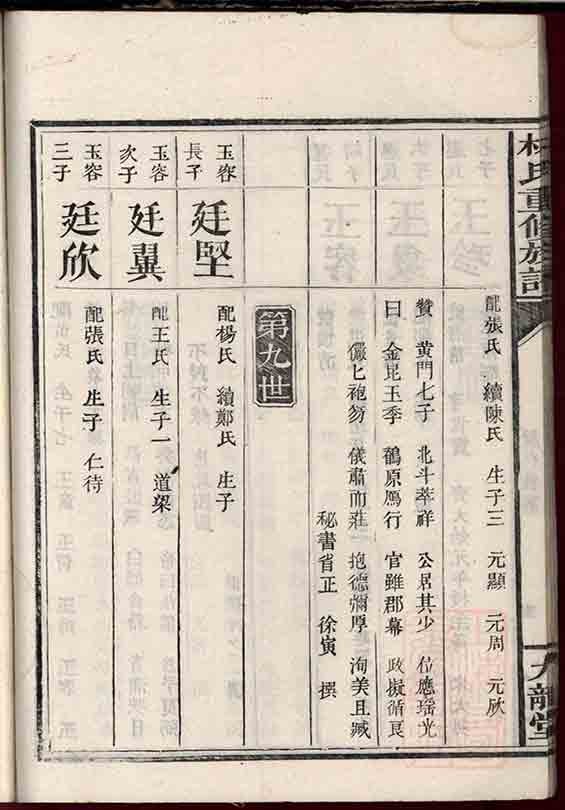 杜氏重修族譜
九龍堂
配張氏 續陳氏 生子三 元顯 元周 元欣
贊 黃門七子 北斗萃祥 公居其少 位應瑤光
曰 金昆玉季 鶺原鴈行 官雖郡幕 政擬循良
儼匕袍笏 儀肅而莊 抱德彌厚 洵美且臧
秘書省正 徐寅 撰
第九世
玉容長子 廷堅 配楊氏 續鄭氏 生子
玉容次子 廷翼 配王氏 生子一 道榘
玉容三子 廷欣 配張氏 生子 仁待